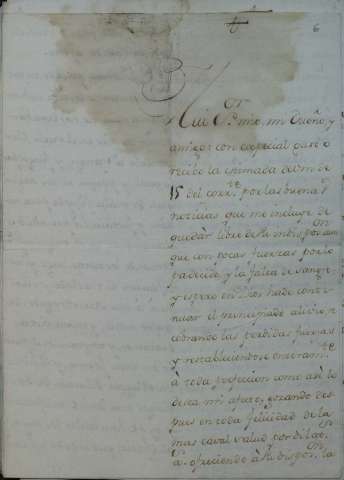 6
Mui Sr. mio, mi Dueño, y
amigo: con especial gusto
recibo la estimada de Vm de
15 del corrte. por las buenas
noticias que me incluye de
quedar libre de su indispon. aun
que con pocas fuerzas por lo
padecido, y la falta de sangre
y espero en Dios hade conti-
nuar el principiado alivio, re
cobrando las perdidas fuerzas
y restableciendose enteramte.
à toda perfeccion como asi lo
desea mi afecto, gozando des
pues en toda felicidad de la
mas caval salud por dilas.
as. ofreciendo à su dispon. la